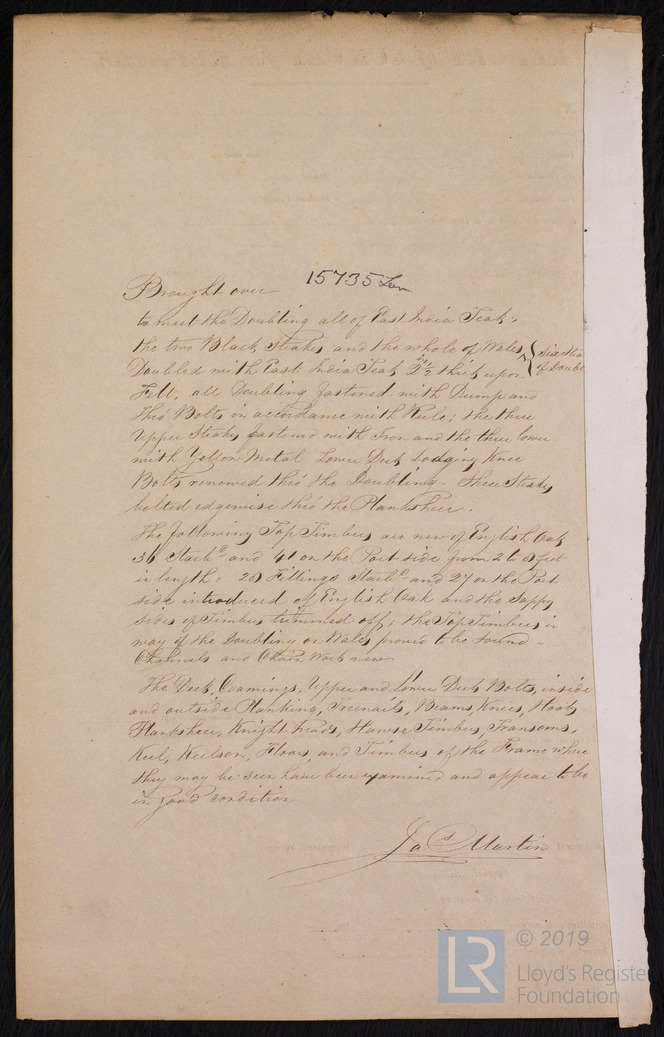 15735 Lon
Brought over
to meet the Doubling all of East India Teak.
the two Black Strakes and the whole of Wales {Six Stra
Doubled with East India Teak 2½ in thick upon of Doubl
Felt, all Doubling fastened with Dump and
thro' Bolts in accordance with Rule; the three
Upper Strakes fastened with Iron and the three lower
with Yellow Metal Lower Deck Lodging Knee
Bolts renewed thro' the Doubling. three Strakes
bolted edgewise thro' the Planksheer.
The following Top Timbers are new of English Oak
36 Starbd and 41 on the Port side from 2 to feet
in length; 28 Fillings Starbd and 27 on the Port
side introduced of English Oak and the Sappy
sides of Timbers trimmed off; the Top Timbers in
way of the Doubling or Wales proved to be sound -
Channels and Chain Work new
The Deck, Comings, Upper and Lower Deck Bolts, inside
and outside Planking, Treenails, Beams, Knees, Hooks
Planksheer, Knight heads, Hawse Timbers, Transoms,
Keel, Keelson, Floors, and Timbers of the Frame where
they may be seen have been examined and appear to be
in good condition
Jas Martin
LR
© 2019
Lloyd's Register
Foundation